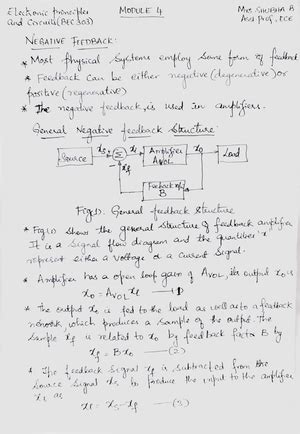 Electronic principles
and Circuits(BEC303)
MODULE 4
Mrs SHUBHA B
Asst Prof, ECE
NEGATIVE FEEDBACK:
* Most physical systems employ some form of feedback
* Feedback can be either negative (degenerative) or
positive (regenerative)
* The negative feedback, is used in amplifiers.
General Negative feedback Structure
Source xs + Σ xi Amplifier AVOL xo Load
- xf
Feedback n/w
B
Fig(1): General feedback structure
* Fig(1) shows the general structure of feedback amplifier
It is a signal flow diagram and the quantities 'x'
represent either a voltage or a current signal.
* Amplifier has a open loop gain of AVOL, its output xo is
xo = AVOL xi — (1)
* The output xo is fed to the load as well as to a feedback
network, which produces a sample of the output. The
sample xf is related to xo by feedback factor B by
xf = Bxo — (2)
* The feedback signal xf is subtracted from the
source signal xs to produce the input to the amplifier
xi as
xi = xs - xf — (3)